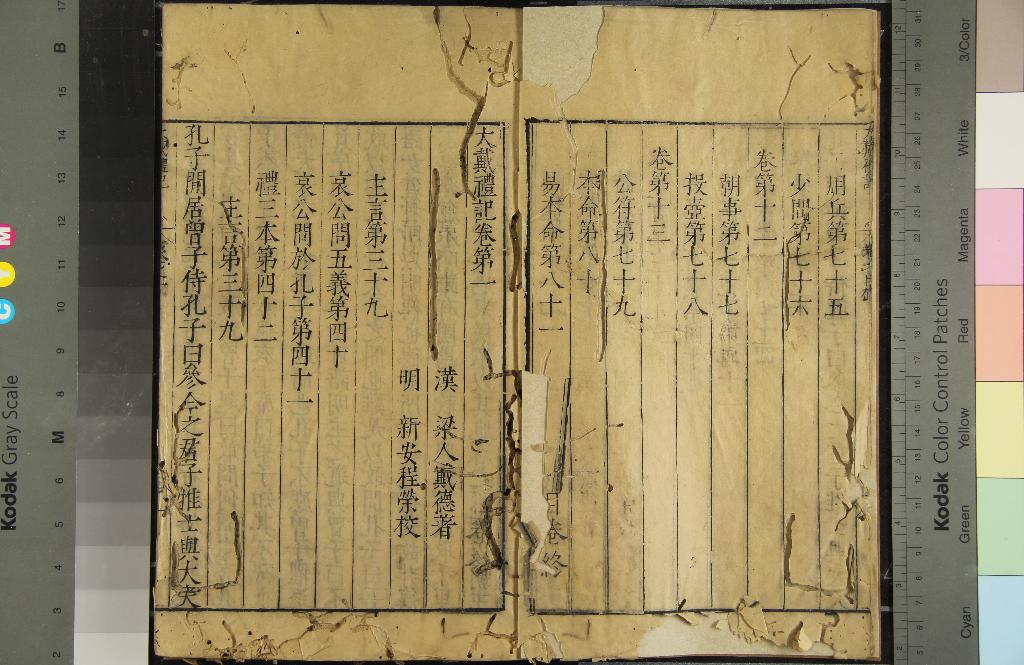 用兵第七十五
少閒第七十六
卷第十二
朝事第七十七
投壺第七十八
卷第十三
公符第七十九
本命第八十
易本命第八十一
大戴禮記卷第一
漢 梁人戴德著
明 新安程榮校
主言第三十九
哀公問五義第四十
哀公問於孔子第四十一
禮三本第四十二
主言第三十九
孔子閒居曾子侍孔子曰參今之君子惟士與大夫
Kodak Gray Scale
C Y M
Kodak Color Control Patches
Cyan Green Yellow Red Magenta White 3/Color